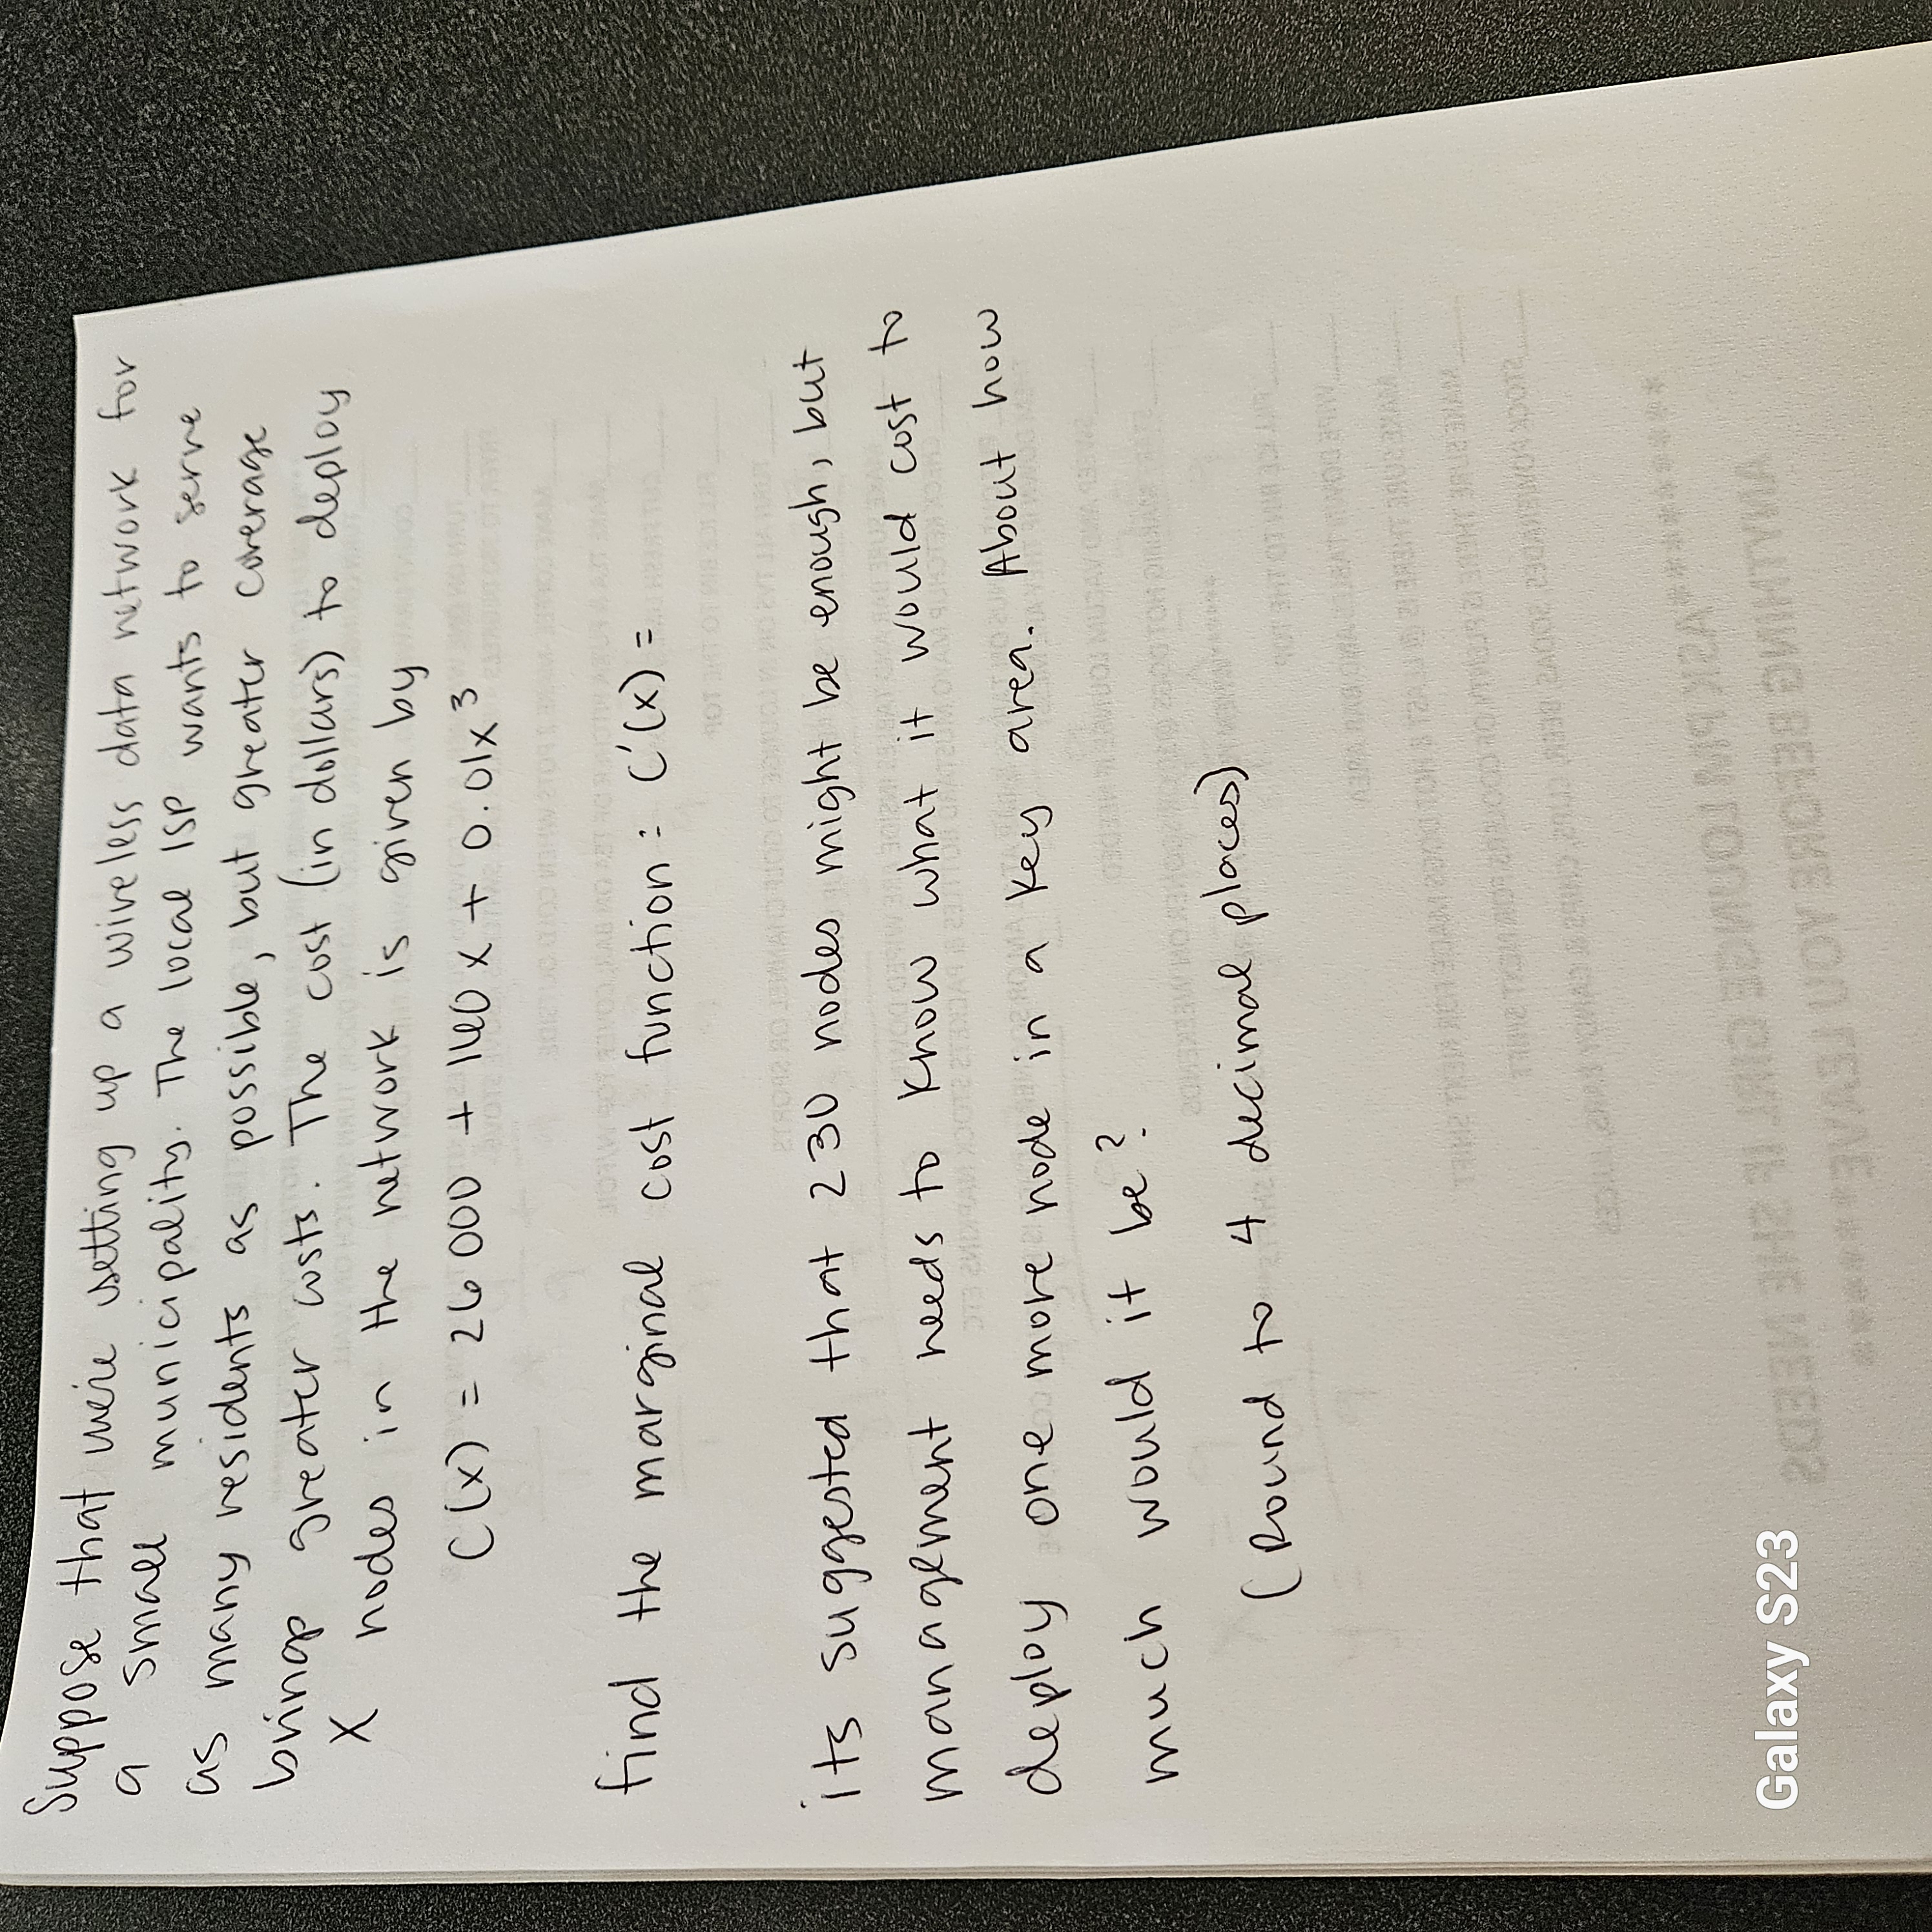 Suppose that we're setting up a wireless data network for
a small municipality. The local ISP wants to serve
as many residents as possible, but greater coverage
brings greater costs. The cost (in dollars) to deploy
X nodes in the network is given by
C(x) = 26 000 + 160 x + 0.01x³
find the marginal cost function: C'(x) =
its suggested that 230 nodes might be enough, but
management needs to know what it would cost to
deploy one more node in a key area. About how
much would it be?
(Round to 4 decimal places)
Galaxy S23